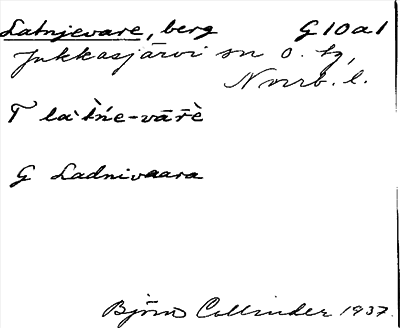 Latnjevare, berg G10a1
Jukkasjärvi sn o. tg,
Norrb. l.
T la·t́ńe-vārè
G Ladnivaara
Björn Collinder 1937